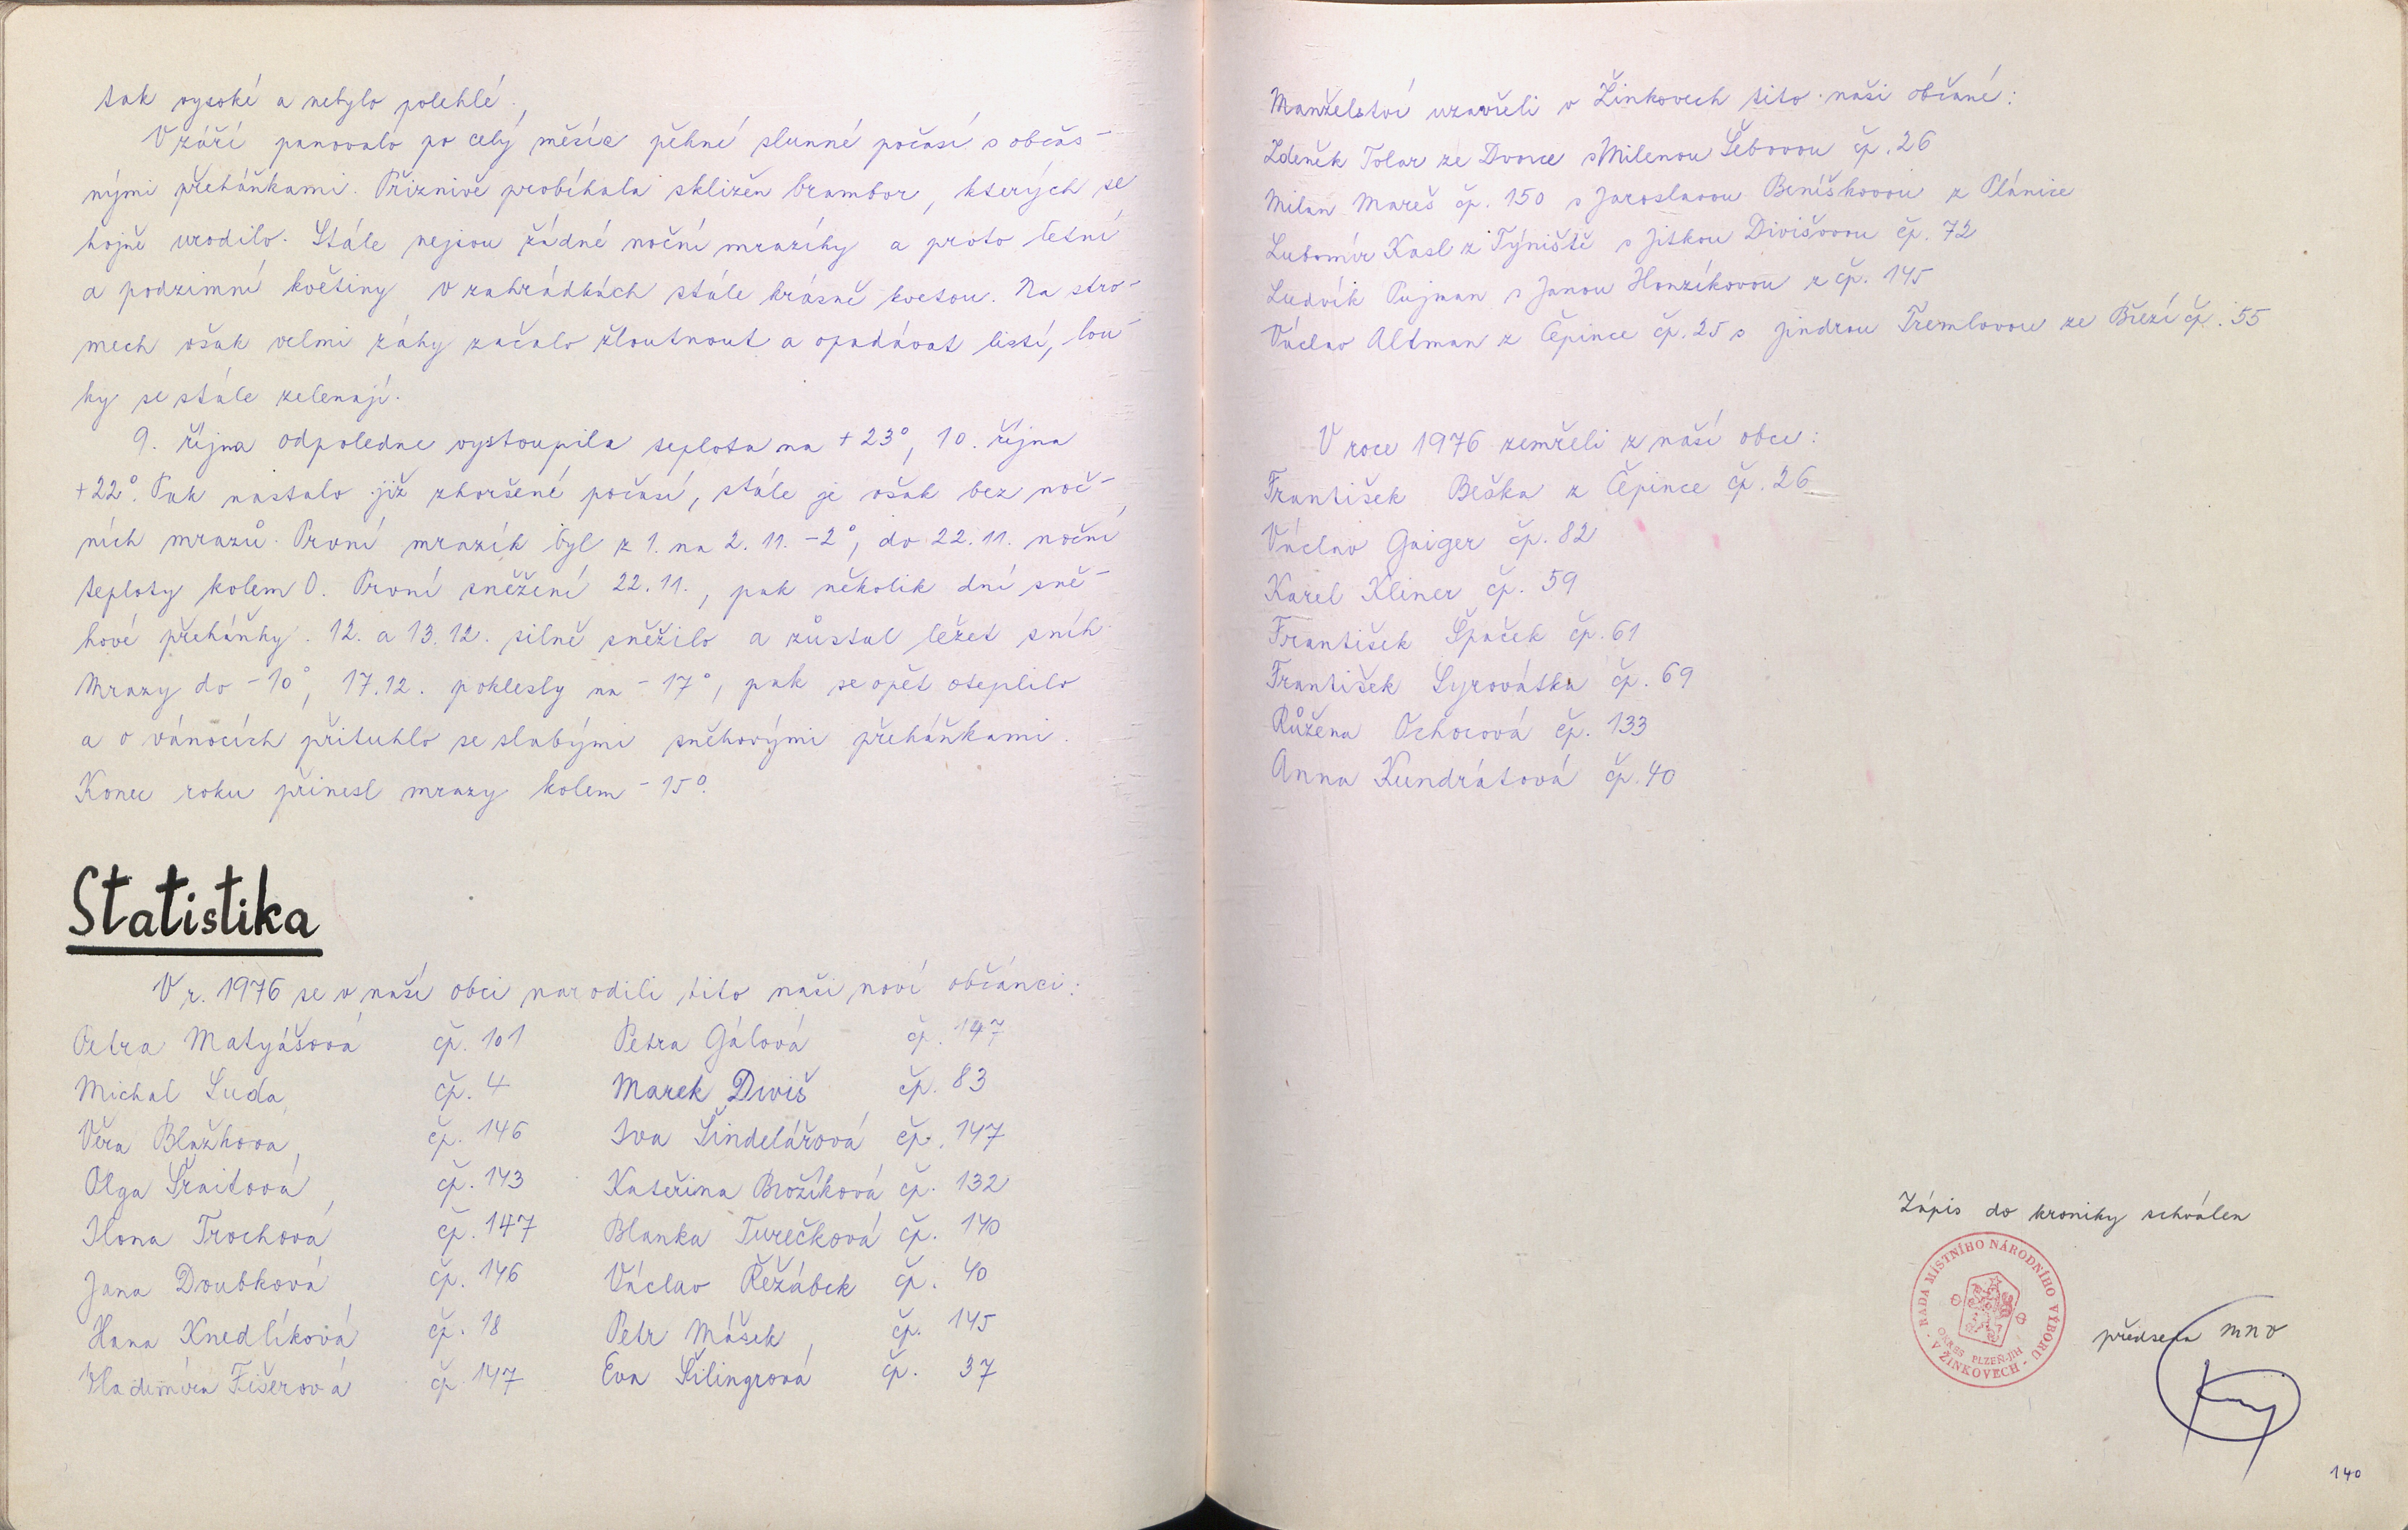 tak vysoké a nebylo polehlé.
V září panovalo po celý měsíc pěkné slunné počasí s občas-
nými přeháňkami. Příznivě probíhala sklizeň brambor, kterých se
hojně urodilo. Stále nejsou žádné noční mrazíky a proto letní
a podzimní květiny v zahrádkách stále krásně kvetou. Na stro-
mech však velmi záhy začalo žloutnout a opadávat listí, lou-
ky se stále zelenají.
9. října odpoledne vystoupila teplota na +23°, 10. října
+22°. Pak nastalo již zhoršené počasí, stále je však bez noč-
ních mrazů. První mrazík byl z 1. na 2. 11. -2°, do 22. 11. noční
teploty kolem 0. První sněžení 22. 11., pak několik dní sně-
hové přeháňky. 12. a 13. 12. silně sněžilo a zůstal ležet sníh.
Mrazy do -10°, 17.12. poklesly na -17°, pak se opět oteplilo
a o vánocích přituhlo se slabými sněhovými přeháňkami.
Konec roku přinesl mrazy kolem -15°.
Statistika
V r. 1976 se v naší obci narodili tito naši noví občánci:
Petra Matyášová čp. 101 Petra Gálová čp. 147
Michal Suda čp. 4 Marek Diviš čp. 83
Věra Blažkova, čp. 146 Iva Šindelářová čp. 147
Olga Šraitová, čp. 143 Kateřina Brožíková čp. 132
Ilona Trochová čp. 147 Blanka Turečková čp. 140
Jana Doubková čp. 146 Václav Řežábek čp. 40
Hana Knedlíková čp. 18 Petr Mášek, čp. 145
Vladimíra Fišerová čp 147 Eva Šilingrová čp. 37
Manželství uzavřeli v Žinkovech tito naši občané:
Zdeněk Tolar ze Dvorce s Milenou Šebovou čp. 26
Milan Mareš čp. 150 s Jaroslavou Beníškovou z Plánice
Lubomír Kasl z Týniště s Jitkou Divišovou čp. 72
Ludvík Pujman s Janou Honzíkovou z čp. 145
Václav Altman z Čepince čp. 25 s Jindrou Tremlovou ze Březí čp. 55
V roce 1976 zemřeli z naší obce:
František Beška z Čepince čp. 26
Václav Gaiger čp. 82
Karel Kliner čp. 59
František Špaček čp. 61
František Syrovátka čp. 69
Růžena Ochocová čp. 133
Anna Kundrátová čp. 40
Zápis do kroniky schválen
RADA MÍSTNÍHO NÁRODNÍHO VÝBORU
- V ŽINKOVECH -
OKRES PLZEŇ-JIH
předseda MNV
140